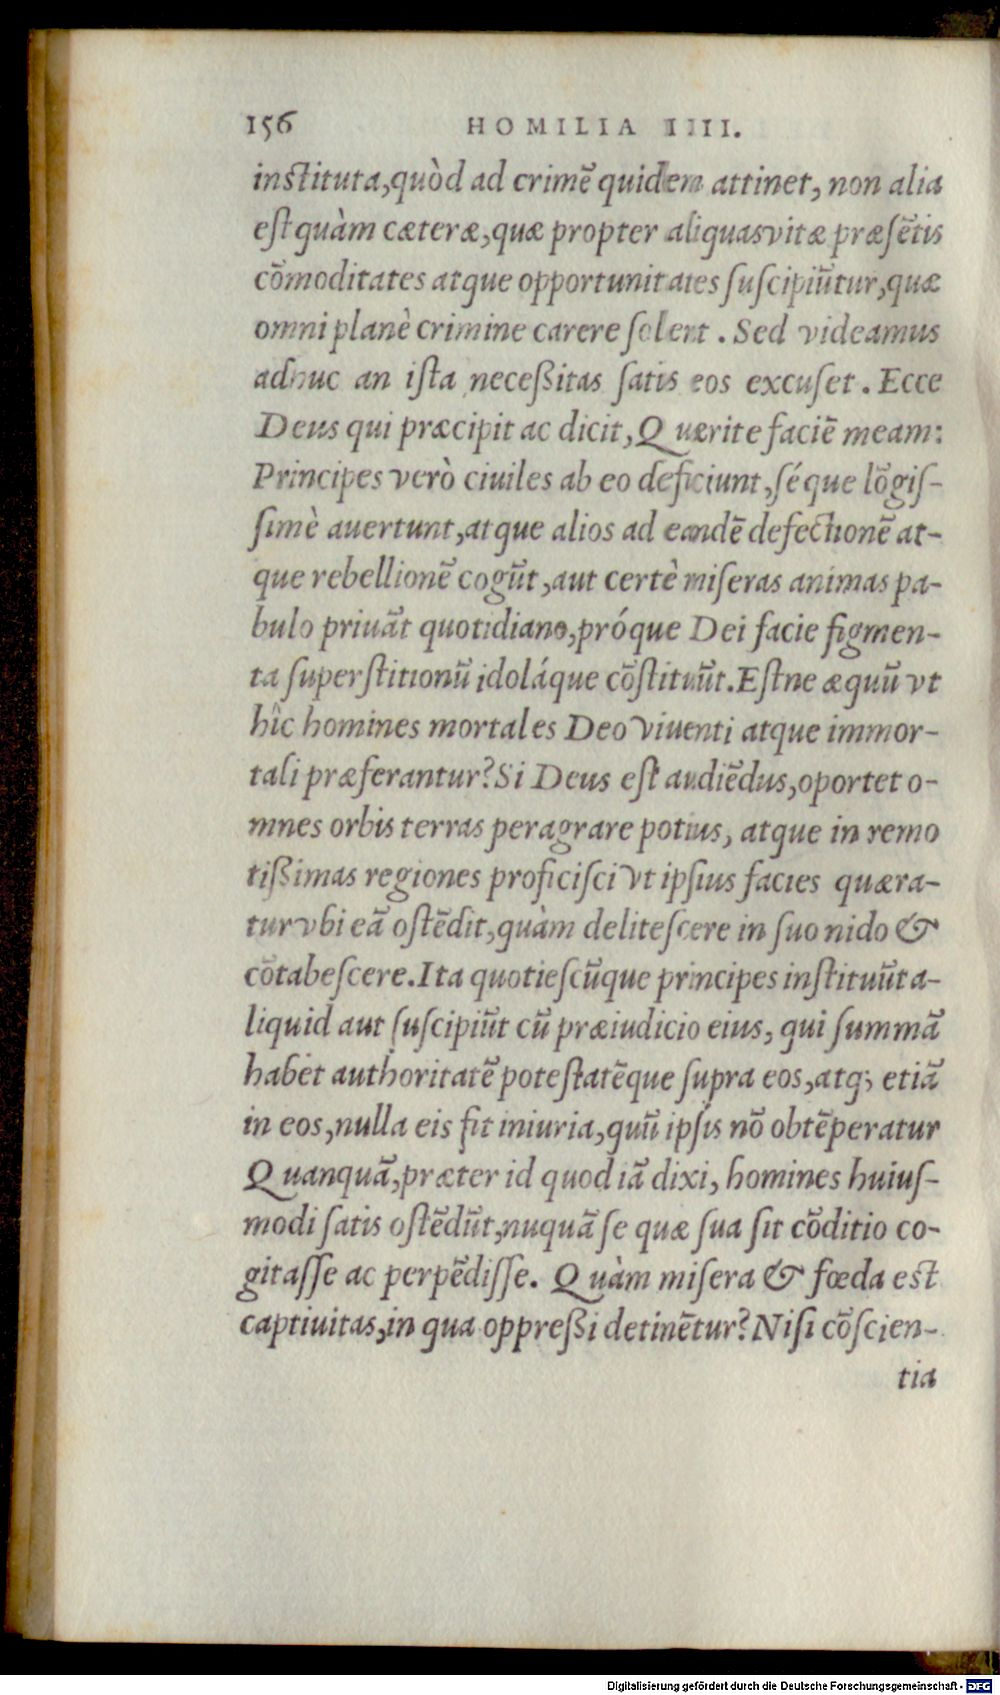 156 HOMILIA IIII.
instituta, quòd ad crimē quidem attinet, non alia
est quàm cæteræ, quæ propter aliquas vitæ præsētis
cōmoditates atque opportunitates suscipiūtur, quæ
omni planè crimine carere solent. Sed videamus
adhuc an ista necessitas satis eos excuset. Ecce
Deus qui præcipit ac dicit, Quærite faciē meam:
Principes verò ciuiles ab eo deficiunt, séque lōgis-
simè auertunt, atque alios ad eandē defectionē at-
que rebellionē cogūt, aut certè miseras animas pa-
bulo priuāt quotidiano, próque Dei facie figmen-
ta superstitionū idoláque cōstituūt. Estne æquū vt
hîc homines mortales Deo viuenti atque immor-
tali præferantur? Si Deus est audiēdus, oportet o-
mnes orbis terras peragrare potius, atque in remo
tissimas regiones proficisci vt ipsius facies quæra-
tur vbi eā ostēdit, quàm delitescere in suo nido &
cōtabescere. Ita quotiescūque principes instituūt a-
liquid aut suscipiūt cū præiudicio eius, qui summā
habet authoritatē potestatēque supra eos, atq; etiā
in eos, nulla eis fit iniuria, quū ipsis nō obtēperatur
Quanquā, præter id quod iā dixi, homines huius-
modi satis ostēdūt, nuquā se quæ sua sit cōditio co-
gitasse ac perpēdisse. Quàm misera & fœda est
captiuitas, in qua oppressi detinētur? Nisi cōscien-
tia
Digitalisierung gefördert durch die Deutsche Forschungsgemeinschaft - DFG